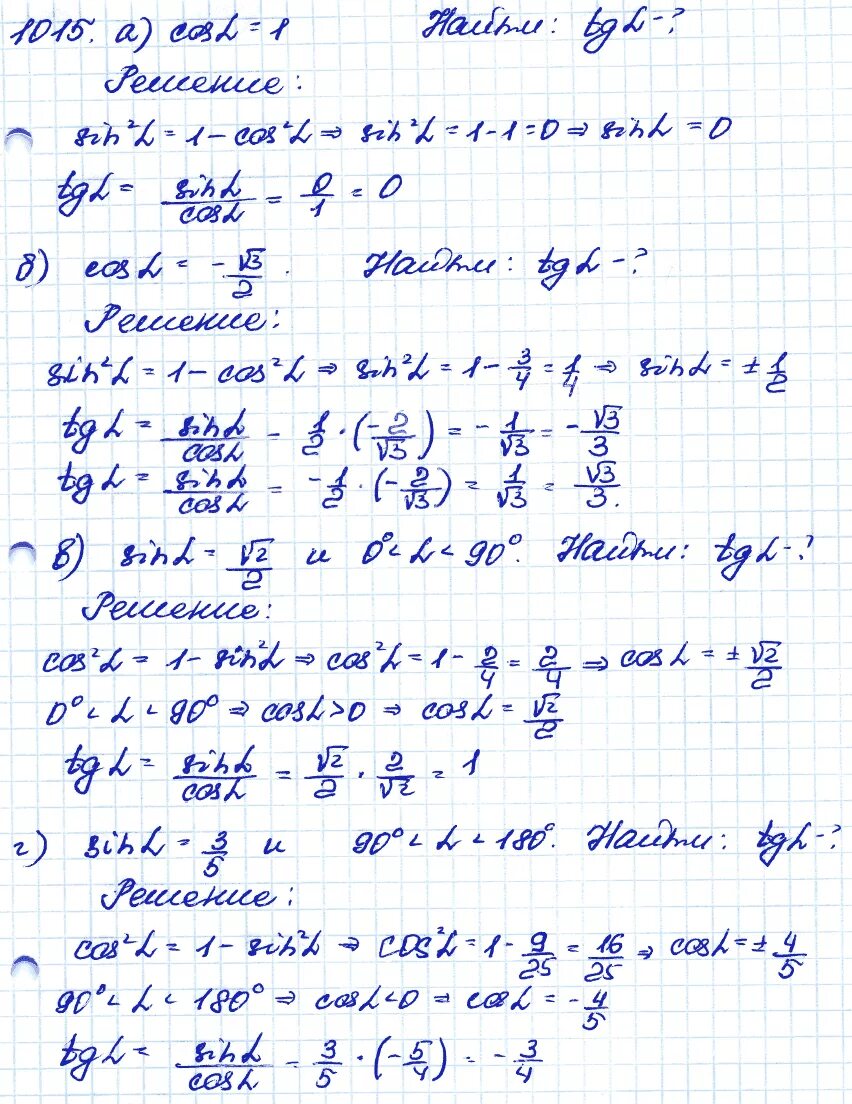 1015. а) cos α = 1 Найти: tg α - ?
Решение:
sin²α = 1 - cos²α ⇒ sin²α = 1 - 1 = 0 ⇒ sin α = 0
tg α = sin α / cos α = 0/1 = 0
б) cos α = -√3/2. Найти: tg α - ?
Решение:
sin²α = 1 - cos²α ⇒ sin²α = 1 - 3/4 = 1/4 ⇒ sin α = ± 1/2
tg α = sin α / cos α - 1/2 · (-2/√3) = -1/√3 = -√3/3
tg α = sin α / cos α = -1/2 · (-2/√3) = 1/√3 = √3/3.
в) sin α = √2/2 и 0° < α < 90°. Найти: tg α - ?
Решение:
cos²α = 1 - sin²α ⇒ cos²α = 1 - 2/4 = 2/4 ⇒ cos α = ± √2/2
0° < α < 90° ⇒ cos α > 0 ⇒ cos α = √2/2
tg α = sin α / cos α = √2/2 · 2/√2 = 1
г) sin α = 3/5 и 90° < α < 180°. Найти: tg α - ?
Решение:
cos²α = 1 - sin²α ⇒ cos²α = 1 - 9/25 = 16/25 ⇒ cos α = ± 4/5
90° < α < 180° ⇒ cos α < 0 ⇒ cos α = -4/5
tg α = sin α / cos α = 3/5 · (-5/4) = -3/4